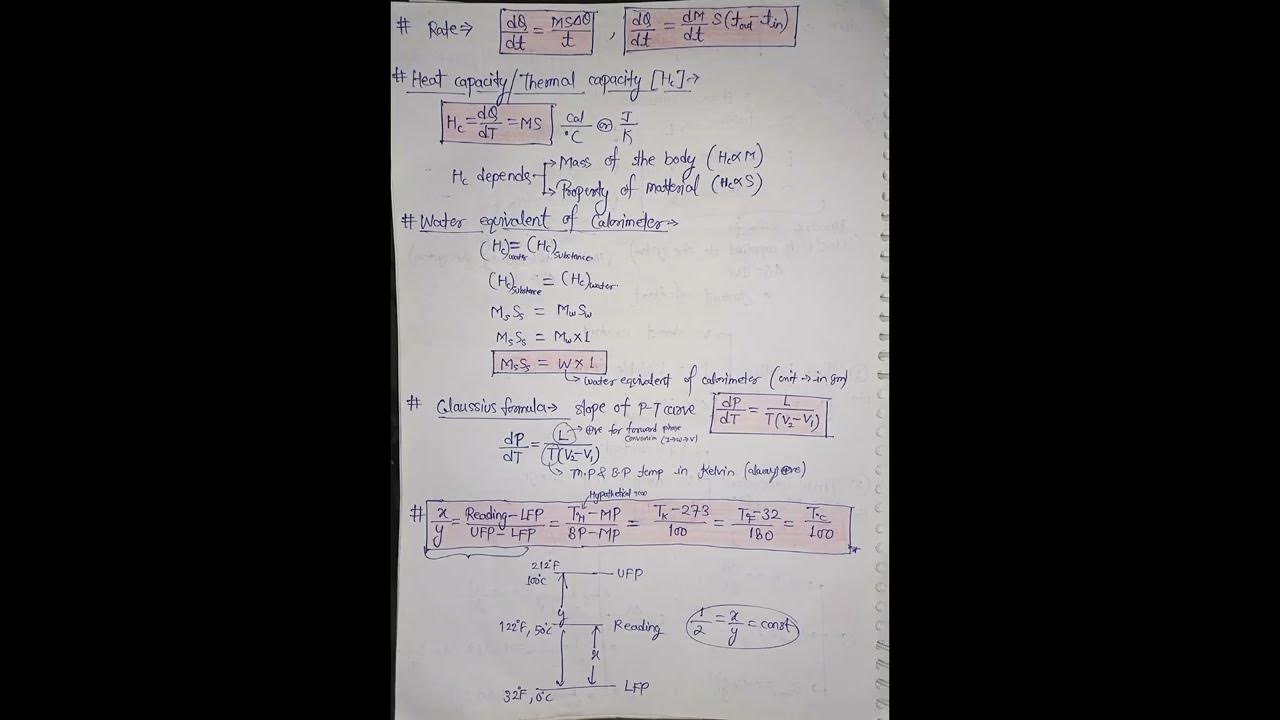 # Rate⇒ dQ/dt = MSΔθ/t , dQ/dt = dM/dt S(tout - tin)
# Heat capacity/Thermal capacity [Hc]→
Hc = dQ/dT = MS cal/°C or J/K
Hc depends → Mass of the body (Hc∝M)
→ Property of material (Hc∝S)
# Water equivalent of Calorimeter→
(Hc)water = (Hc)substance
(Hc)substance = (Hc)water
MsSs = MwSw
MsSs = Mw×1
MsSs = W×1
→ water equivalent of calorimeter (unit → in gm)
# Claussius formula→ slope of P-T curve dP/dT = L/T(V2-V1)
→ ⊕ve for forward phase
dP/dT = L/T(V2-V1)
→ M.P & B.P temp in kelvin (always ⊕ve)
Hypothetical
# x/y = Reading-LFP/UFP-LFP = T°H-MP/BP-MP = TK-273/100 = T°F-32/180 = T°C/100
212°F
100°C UFP
y
122°F, 50°C Reading 1/2 = x/y = const
x
32°F, 0°C LFP